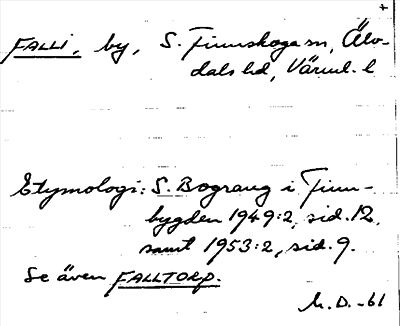 FALLI, by, S. Finnskoga sn, Älv-
dals hd, Värml. l
Etymologi: S. Bograng i Finn-
bygden 1949:2, sid. 12,
samt 1953:2, sid. 9.
Se även FALLTORP.
M. D. -61